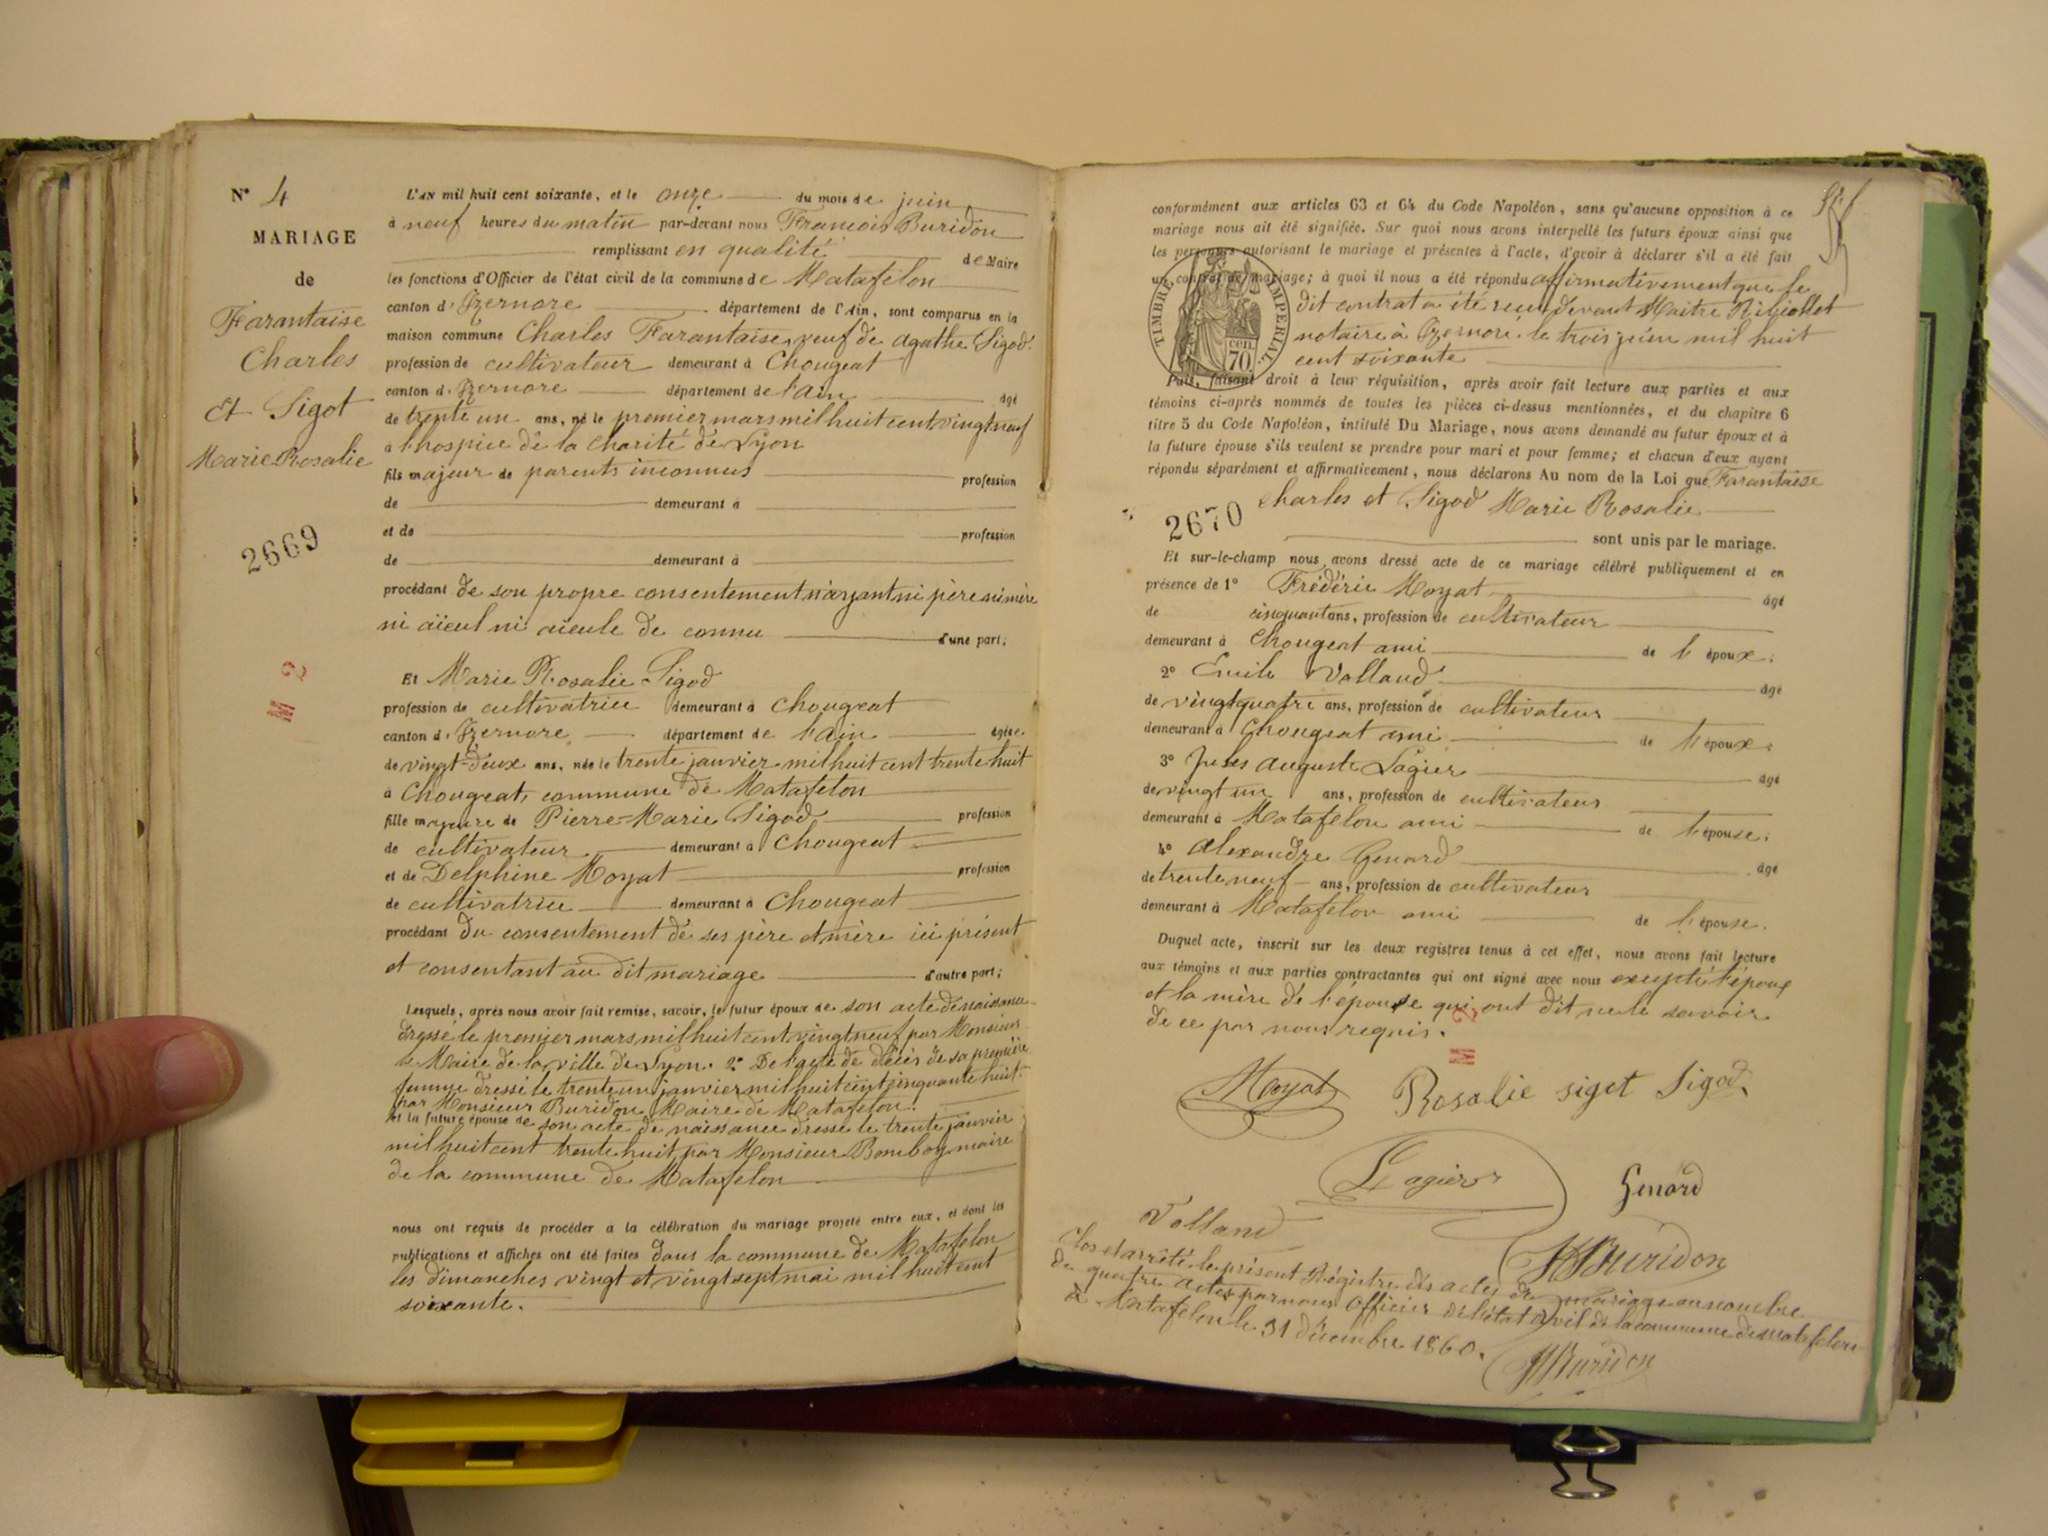 N° 4
MARIAGE
de
Farantaise
Charles
Et Sigot
Marie Rosalie
2669
M 2
L'AN mil huit cent soixante, et le onze du mois de juin
à neuf heures du matin par-devant nous François Buridon
remplissant en qualité de Maire
les fonctions d'Officier de l'état civil de la commune de Matafelon
canton d'Izernore département de l'Ain, sont comparus en la
maison commune Charles Farantaise, veuf de Agathe Sigod.
profession de cultivateur demeurant à Chougeat
canton d'Izernore département de l'Ain âgé
de trente un ans, né le premier mars mil huit cent vingt neuf
à l'hospice de la Charité de Lyon
fils majeur de parents inconnus profession
de demeurant à
et de profession
de demeurant à
procédant de son propre consentement n'ayant ni père ni mère
ni aïeul ni aïeule de connu d'une part;
Et Marie Rosalie Sigod
profession de cultivatrice demeurant à Chougeat
canton d'Izernore département de l'Ain âgée
de vingt-deux ans, née le trente janvier mil huit cent trente huit
à Chougeat, commune de Matafelon
fille majeure de Pierre-Marie Sigod profession
de cultivateur demeurant à Chougeat
et de Delphine Moyat profession
de cultivatrice demeurant à Chougeat
procédant du consentement de ses père et mère ici présent
et consentant au dit mariage d'autre part;
Lesquels, après nous avoir fait remise, savoir, le futur époux de son acte de naissance
dressé le premier mars mil huit cent vingt neuf par Monsieur
le Maire de la ville de Lyon. 2° De l'acte de décès de sa première
femme dressé le trente un janvier mil huit cent cinquante huit
par Monsieur Buridon Maire de Matafelon.
et la future épouse de son acte de naissance dressé le trente janvier
mil huit cent trente huit par Monsieur Bomboy maire
de la commune de Matafelon
nous ont requis de procéder à la célébration du mariage projeté entre eux, et dont les
publications et affiches ont été faites dans la commune de Matafelon
les dimanches vingt et vingt sept mai mil huit cent
soixante.
conformément aux articles 63 et 64 du Code Napoléon, sans qu'aucune opposition à ce
mariage nous ait été signifiée. Sur quoi nous avons interpellé les futurs époux ainsi que
les personnes autorisant le mariage et présentes à l'acte, d'avoir à déclarer s'il a été fait
un contrat de mariage; à quoi il nous a été répondu affirmativement que le
dit contrat a été reçu devant Maitre Ribiollet
notaire à Izernore le trois juin mil huit
cent soixante
TIMBRE IMPERIAL
70 cen.
Puis, faisant droit à leur réquisition, après avoir fait lecture aux parties et aux
témoins ci-après nommés de toutes les pièces ci-dessus mentionnées, et du chapitre 6
titre 5 du Code Napoléon, intitulé Du Mariage, nous avons demandé au futur époux et à
la future épouse s'ils veulent se prendre pour mari et pour femme; et chacun d'eux ayant
répondu séparément et affirmativement, nous déclarons Au nom de la Loi que Farantaise
Charles et Sigod Marie Rosalie
2670
sont unis par le mariage.
Et sur-le-champ nous avons dressé acte de ce mariage célébré publiquement et en
présence de 1° Frédéric Moyat âgé
de cinquante ans, profession de cultivateur
demeurant à Chougeat ami de l'époux;
2° Emile Volland âgé
de vingt quatre ans, profession de cultivateur
demeurant à Chougeat ami de l'époux;
3° Jules Auguste Lagier âgé
de vingt un ans, profession de cultivateur
demeurant à Matafelon ami de l'épouse;
4° Alexandre Genard âgé
de trente neuf ans, profession de cultivateur
demeurant à Matafelon ami de l'épouse.
Duquel acte, inscrit sur les deux registres tenus à cet effet, nous avons fait lecture
aux témoins et aux parties contractantes qui ont signé avec nous excepté l'époux
et la mère de l'épouse qui ont dit ne le savoir
de ce par nous requis.
Moyat Rosalie sigot Sigod
Lagier Genard
Volland
Buridon
Clos et arrêté le présent Régistre des actes de mariage au nombre
de quatre actes par nous Officier de l'état civil de la commune de Matafelon
à Matafelon le 31 décembre 1860.
Buridon